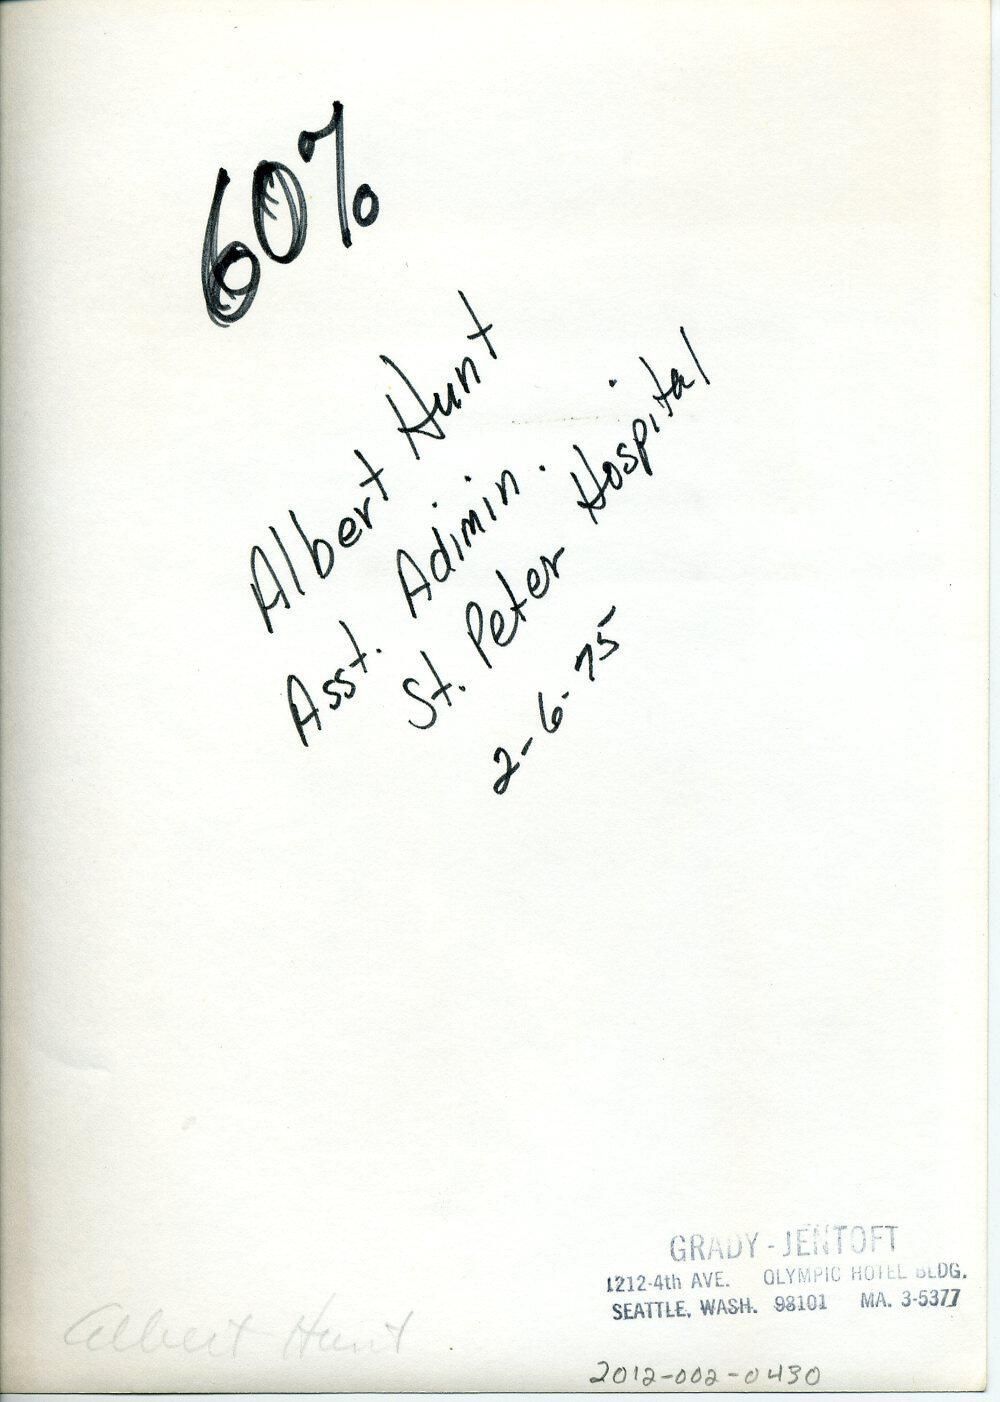 60%
Albert Hunt
Asst. Adimin.
St. Peter Hospital
2-6-75
GRADY-JENTOFT
1212-4th AVE. OLYMPIC HOTEL BLDG.
SEATTLE, WASH. 98101 MA. 3-5377
Albert Hunt
2012-002-0430